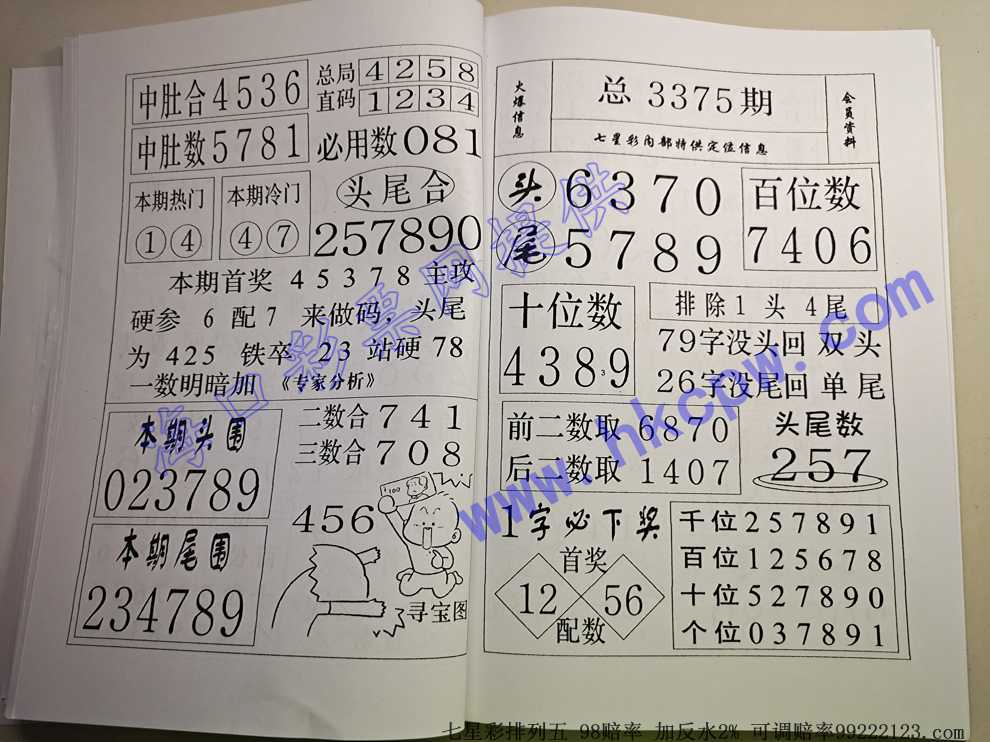 中肚合4536
总局 4 2 5 8
直码 1 2 3 4
中肚数5781
必用数081
本期热门
①④
本期冷门
④⑦
头尾合
257890
本期首奖 4 5 3 7 8 主攻
硬参 6 配 7 来做码，头尾
为 4 2 5 铁卒 2 3 站硬 7 8
一数明暗加 《专家分析》
本期头围
023789
二数合 7 4 1
三数合 7 0 8
本期尾围
234789
456
100
寻宝图
火爆信息
总 3375期
七星彩内部特供定位信息
会员资料
头 6 3 7 0
尾 5 7 8 9
百位数
7406
十位数
4389
3
排除 1 头 4 尾
79字没头回 双 头
26字没尾回 单 尾
前二数取 6870
后二数取 1407
头尾数
257
1字必下奖
首奖
12 56
配数
千位257891
百位125678
十位527890
个位037891
海口彩票网提供
www.hkcpw.com
七星彩排列五 98赔率 加反水2% 可调赔率99222123.com